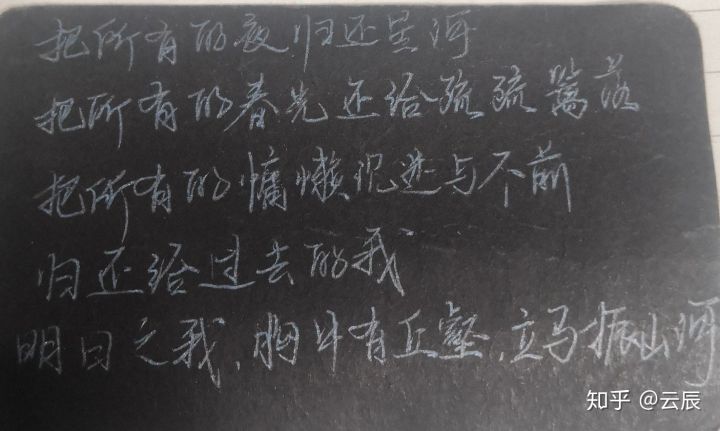 把所有的夜归还星河
把所有的春光还给疏疏篱落
把所有的慵懒沉迷与不前
归还给过去的我
明日之我,胸中有丘壑,立马振山河
知乎 @云辰